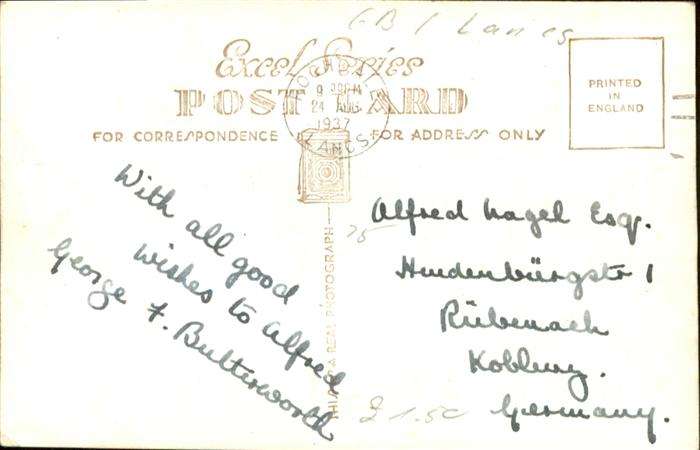 GB / Lancs
Excel Series
POST CARD
FOR CORRESPONDENCE
FOR ADDRESS ONLY
PRINTED
IN
ENGLAND
ROCHDALE
9 PM
24 AUG
1937
LANCS.
With all good
wishes to Alfred
George F. Butterworth
THIS IS A REAL PHOTOGRAPH
75
Alfred Nagel Esq.
Hindenbürgstr 1
Rübenach
Koblenz.
Germany.
£ 1.50